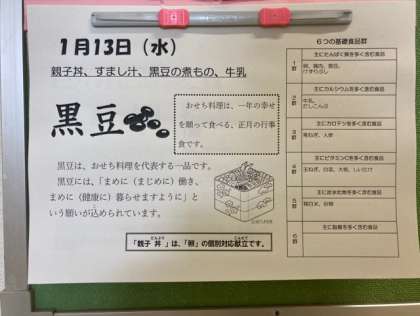 1月13日(水)
親子丼、すまし汁、黒豆の煮もの、牛乳
黒豆
おせち料理は、一年の幸せ
を願って食べる、正月の行事
食です。
黒豆は、おせち料理を代表する一品です。
黒豆には、「まめに(まじめに)働き、
まめに(健康に)暮らせますように」と
いう願いが込められています。
「親子丼」は、「卵」の個別対応献立です。
6つの基礎食品群
主にたんぱく質を多く含む食品
1群
卵、鶏肉、黒豆、
けずりぶし
主にカルシウムを多く含む食品
2群
牛乳、
だしこんぶ
主にカロテンを多く含む食品
3群
青ねぎ、人参
主にビタミンCを多く含む食品
4群
玉ねぎ、白菜、大根、しいたけ
主に炭水化物を多く含む食品
5群
精白米、砂糖
主に脂質を多く含む食品
6群